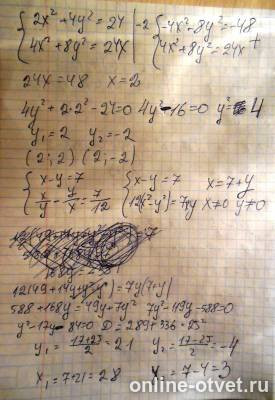 2x² + 4y² = 24 | -2 { -4x² - 8y² = -48
4x² + 8y² = 24x { 4x² + 8y² = 24x +
24x = 48 x = 2
4y² + 2·2² - 24 = 0 4y² - 16 = 0 y² = 4
y₁ = 2 y₂ = -2
(2; 2) (2; -2)
{ x - y = 7 { x - y = 7 x = 7 + y
x/y - y/x = 7/12 x ≠ 0 y ≠ 0
588 + 168y = 49y + 7y² 7y² - 119y - 588 = 0
y² - 17y - 84 = 0 D = 289 + 336 = 25²
y₁ = (17+25)/2 = 21 y₂ = (17-25)/2 = -4
x₁ = 7 + 21 = 28 x₂ = 7 - 4 = 3
online-otvet.ru